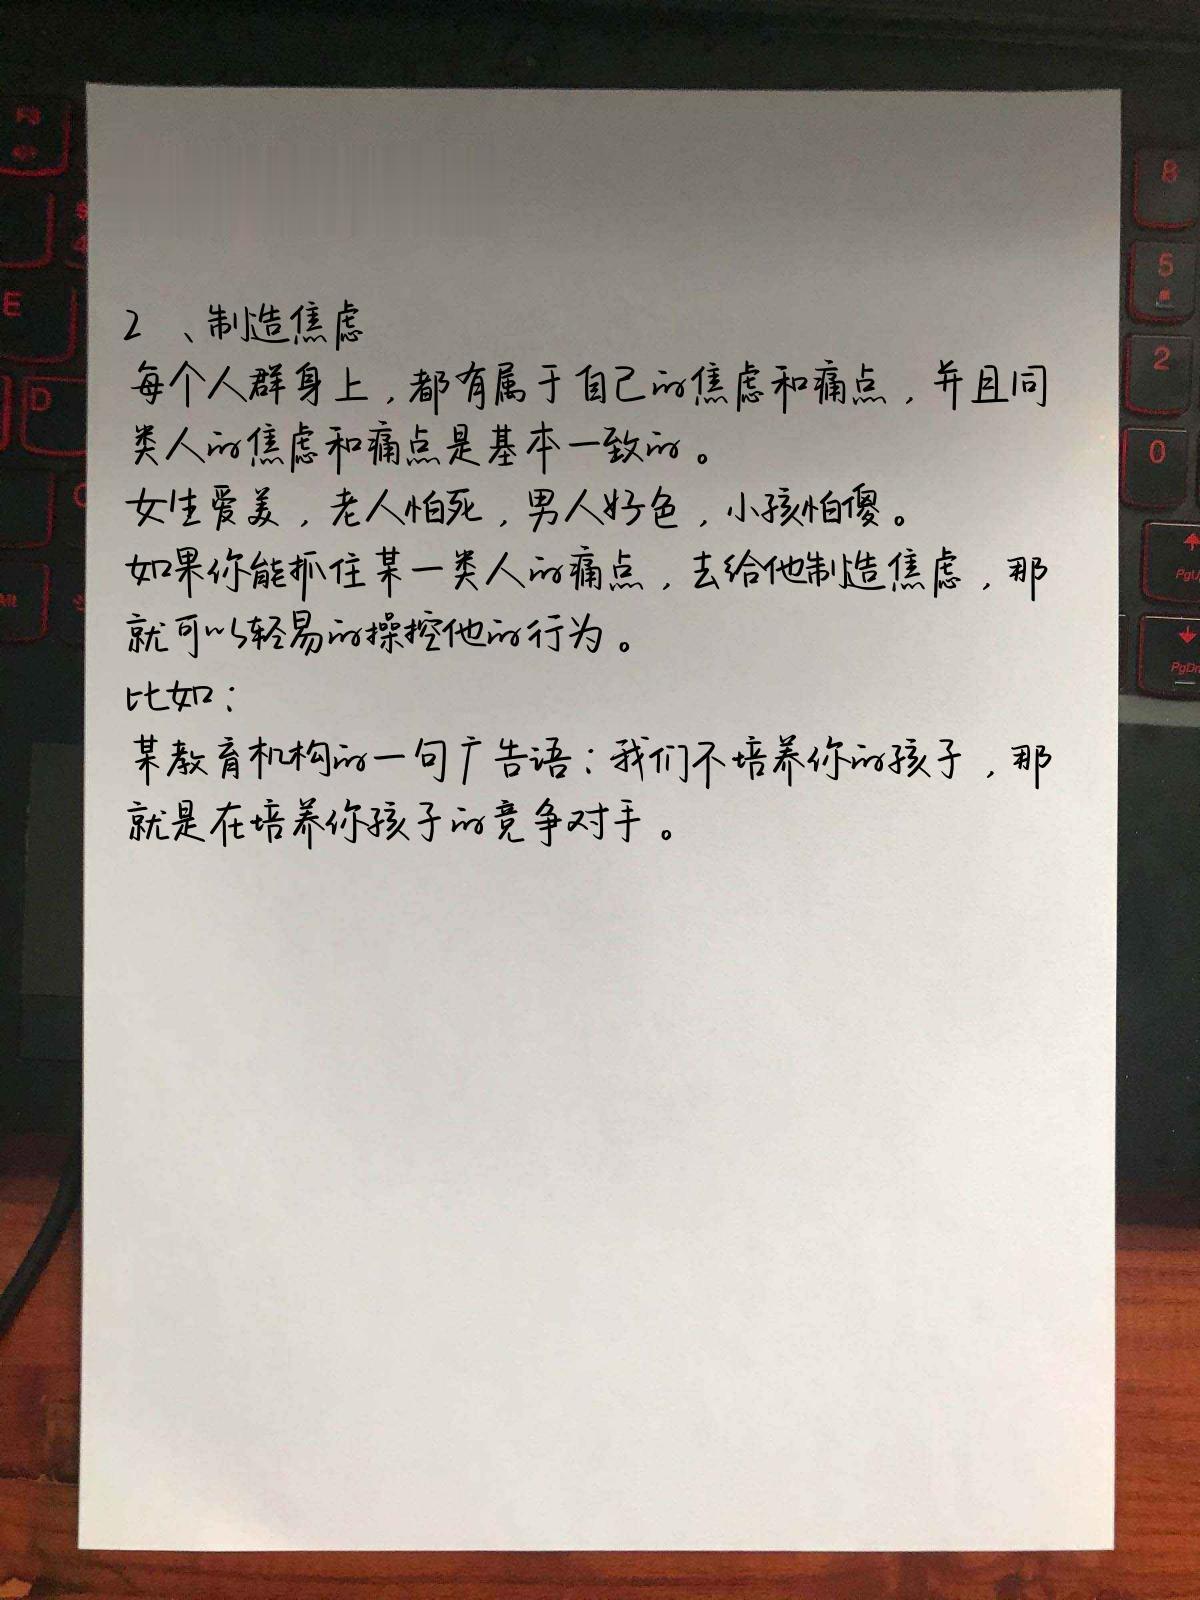 2 、制造焦虑
每个人群身上，都有属于自己的焦虑和痛点，并且同
类人的焦虑和痛点是基本一致的。
女生爱美，老人怕死，男人好色，小孩怕傻。
如果你能抓住某一类人的痛点，去给他制造焦虑，那
就可以轻易的操控他的行为。
比如：
某教育机构的一句广告语：我们不培养你的孩子，那
就是在培养你孩子的竞争对手。
E
D
8
5
2
0
PgDn